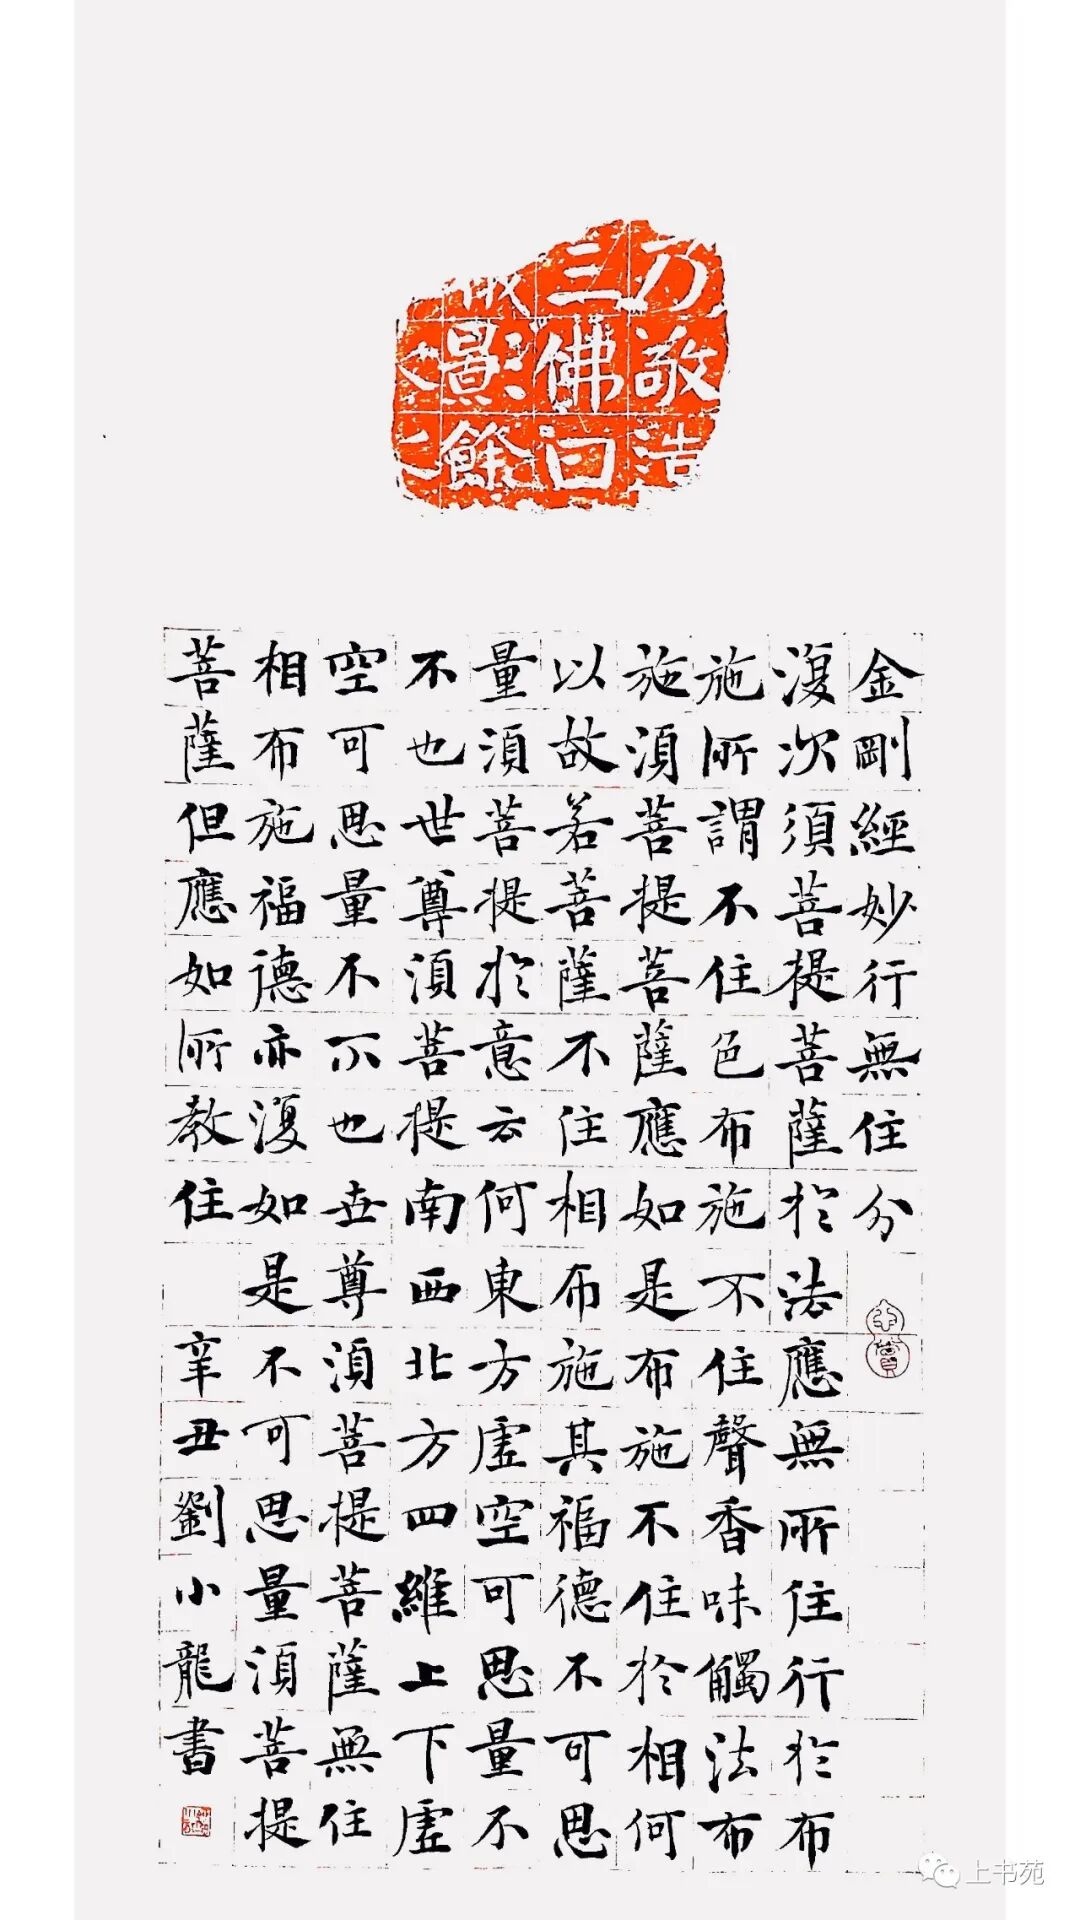 敬
三佛曰
影餘
金剛經妙行無住分
復次須菩提菩薩於法應無所住行於布
施所謂不住色布施不住聲香味觸法布
施須菩提菩薩應如是布施不住於相何
以故若菩薩不住相布施其福德不可思
量須菩提於意云何東方虛空可思量不
不也世尊須菩提南西北方四維上下虛
空可思量不不也世尊須菩提菩薩無住
相布施福德亦復如是不可思量須菩提
菩薩但應如所教住 辛丑劉小龍書
上书苑